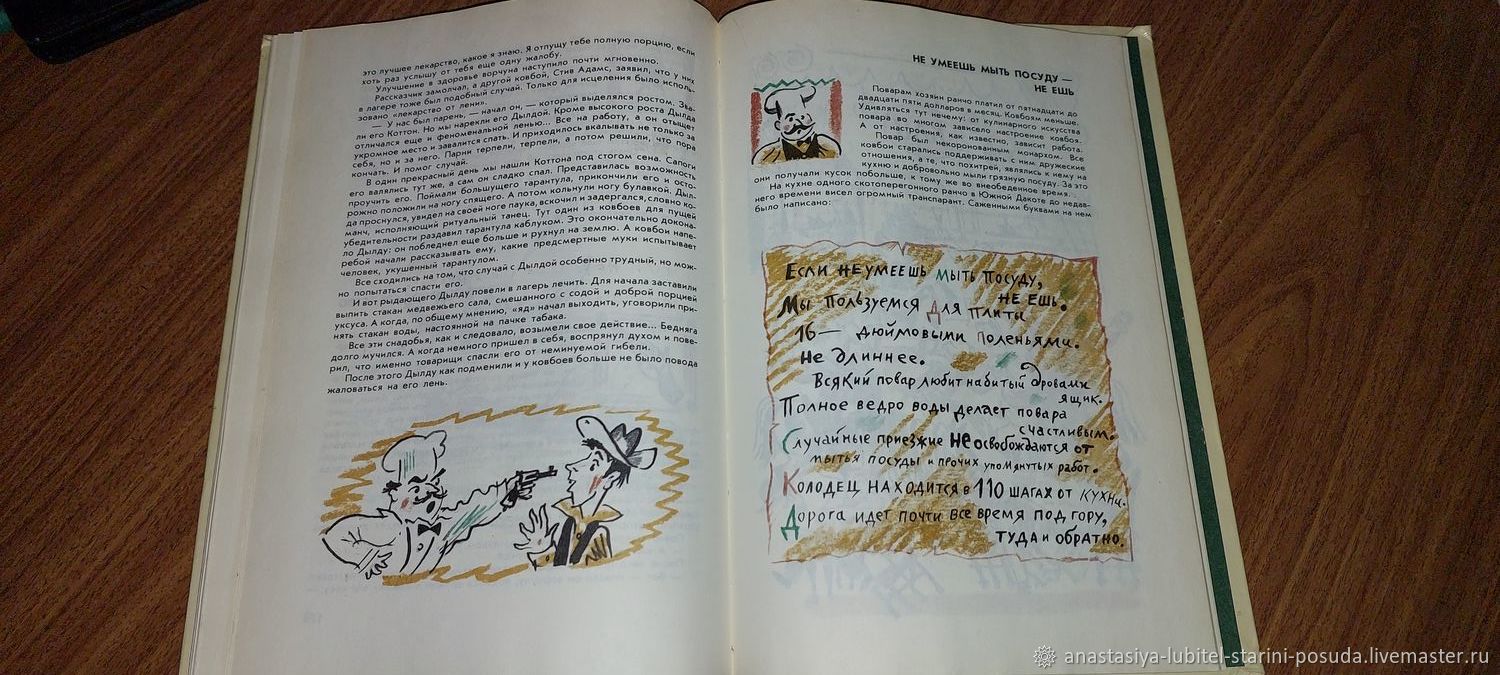 это лучшее лекарство, какое я знаю. Я отпущу тебе полную порцию, если
хоть раз услышу от тебя еще одну жалобу.
Улучшение в здоровье ворчуна наступило почти мгновенно.
Рассказчик замолчал, а другой ковбой, Стив Адамс, заявил, что у них
в лагере тоже был подобный случай. Только для исцеления было исполь-
зовано «лекарство от лени».
— У нас был парень, — начал он, — который выделялся ростом. Зва-
ли его Коттон. Но мы нарекли его Дылдой. Кроме высокого роста Дылда
отличался еще и феноменальной ленью... Все на работу, а он отыщет
укромное место и завалится спать. И приходилось вкалывать не только за
себя, но и за него. Парни терпели, терпели, а потом решили, что пора
кончать. И помог случай.
В один прекрасный день мы нашли Коттона под стогом сена. Сапоги
его валялись тут же, а сам он сладко спал. Представилась возможность
проучить его. Поймали большущего тарантула, прикончили его и осто-
рожно положили на ногу спящего. А потом кольнули ногу булавкой. Дыл-
да проснулся, увидел на своей ноге паука, вскочил и задергался, словно ко-
манч, исполняющий ритуальный танец. Тут один из ковбоев для пущей
убедительности раздавил тарантула каблуком. Это окончательно докона-
ло Дылду: он побледнел еще больше и рухнул на землю. А ковбои напе-
ребой начали рассказывать ему, какие предсмертные муки испытывает
человек, укушенный тарантулом.
Все сходились на том, что случай с Дылдой особенно трудный, но мож-
но попытаться спасти его.
И вот рыдающего Дылду повели в лагерь лечить. Для начала заставили
выпить стакан медвежьего сала, смешанного с содой и доброй порцией
уксуса. А когда, по общему мнению, «яд» начал выходить, уговорили при-
нять стакан воды, настоянной на пачке табака.
Все эти снадобья, как и следовало, возымели свое действие... Бедняга
долго мучился. А когда немного пришел в себя, воспрянул духом и пове-
рил, что именно товарищи спасли его от неминуемой гибели.
После этого Дылду как подменили и у ковбоев больше не было повода
жаловаться на его лень.
НЕ УМЕЕШЬ МЫТЬ ПОСУДУ —
НЕ ЕШЬ
Поварам хозяин ранчо платил от пятнадцати до
двадцати пяти долларов в месяц. Ковбоям меньше.
Удивляться тут нечему: от кулинарного искусства
повара во многом зависело настроение ковбоя.
А от настроения, как известно, зависит работа.
Повар был некоронованым монархом. Все
ковбои старались поддерживать с ним дружеские
отношения, а те, что похитрей, являлись к нему на
кухню и добровольно мыли грязную посуду. За это
они получали кусок побольше, к тому же во внеобеденное время.
На кухне одного скотоперегонного ранчо в Южной Дакоте до недав-
него времени висел огромный транспарант. Саженными буквами на нем
было написано:
Если не умеешь мыть посуду,
не ешь.
Мы пользуемся для плиты
16— дюймовыми поленьями.
Не длиннее.
Всякий повар любит набитый дровами
ящик.
Полное ведро воды делает повара
счастливым.
Случайные приезжие не освобождаются от
мытья посуды и прочих упомянутых работ.
Колодец находится в 110 шагах от кухни.
Дорога идет почти все время под гору,
туда и обратно.
anastasiya-lubitel-starini-posuda.livemaster.ru